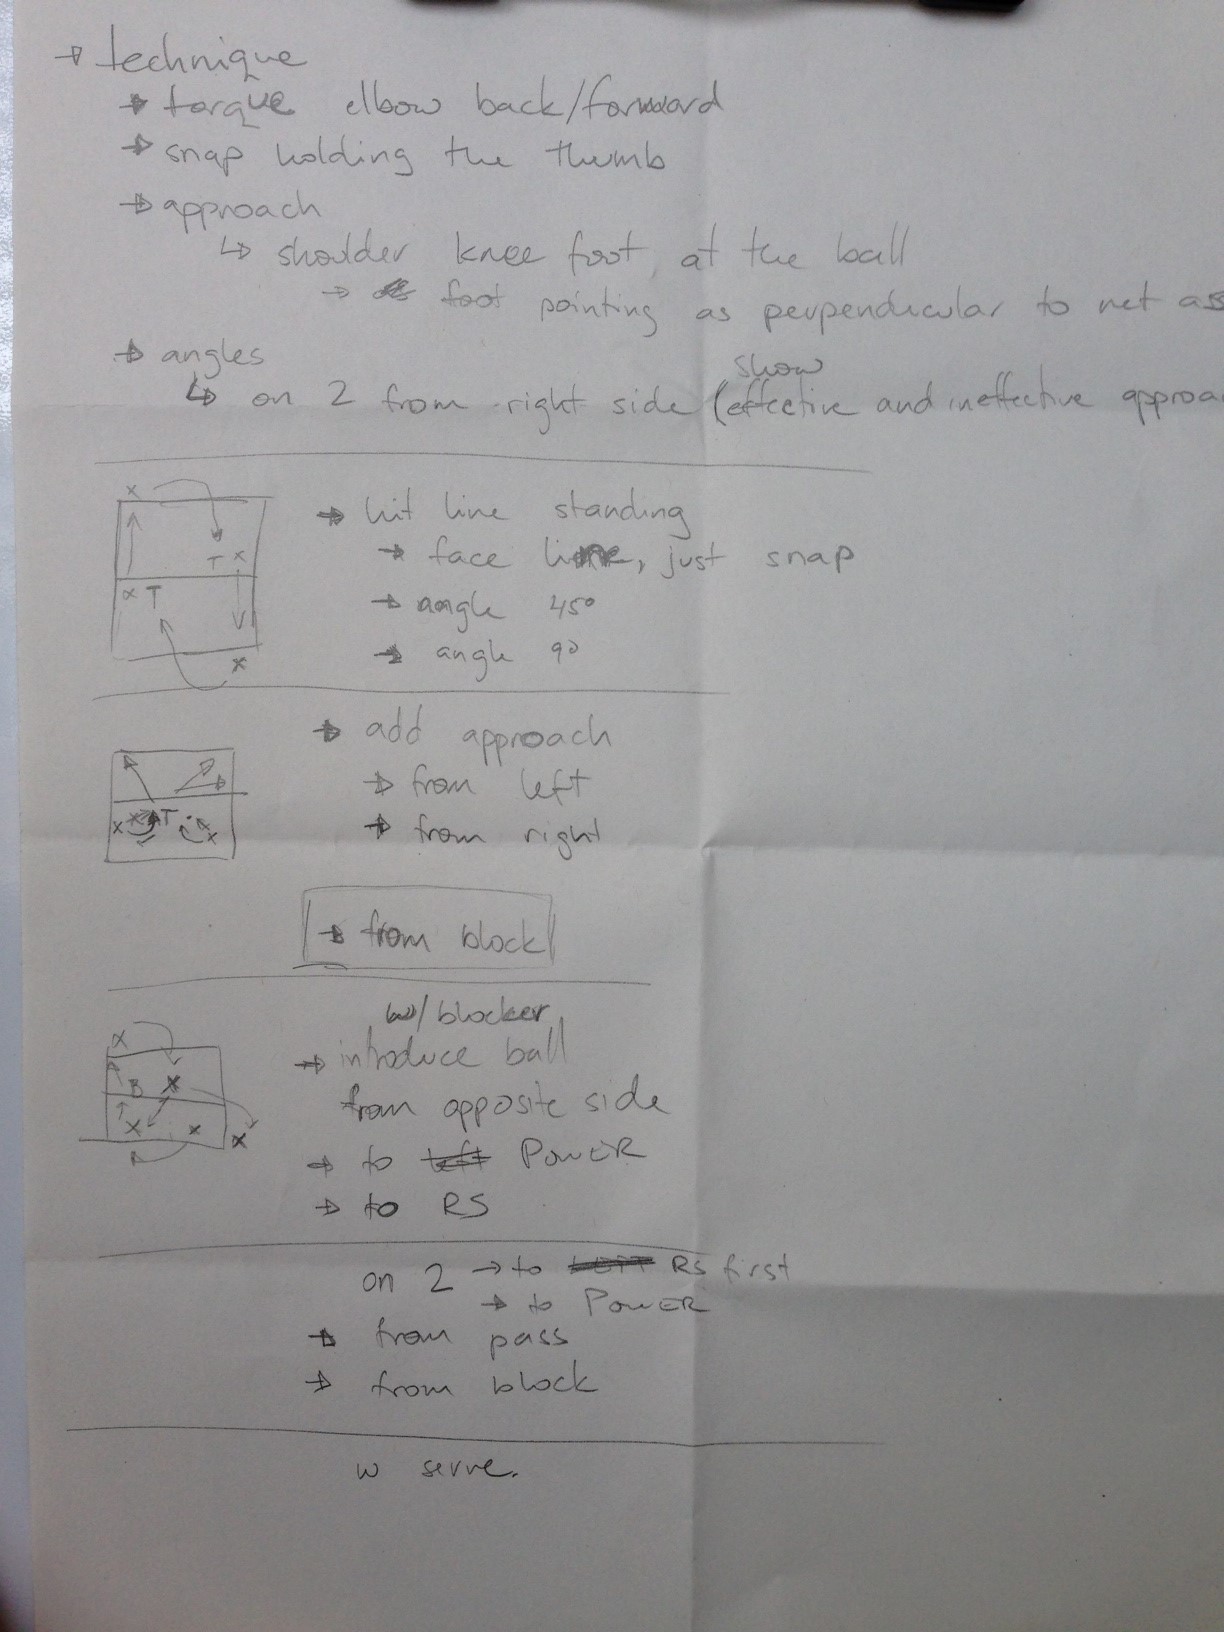 → technique
→ torque elbow back/forward
→ snap holding the thumb
→ approach
↳ shoulder knee foot, at the ball
→ foot pointing as perpendicular to net as
→ angles
show
↳ on 2 from right side (effective and ineffective approa
x
T x
x T
x
→ hit line standing
→ face line, just snap
→ angle 45°
→ angle 90
→ add approach
→ from left
→ from right
x x T x
→ from block
w/ blocker
→ introduce ball
from opposite side
→ to left POWER
→ to RS
X
B X
X x x
on 2 → to LEFT RS first
→ to POWER
→ from pass
→ from block
w serve.